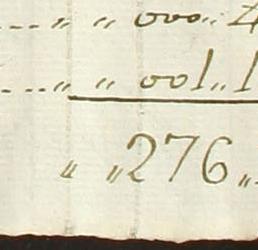 ....„ „ 000„ 4
...„ „ 001„ 1
„ „276„